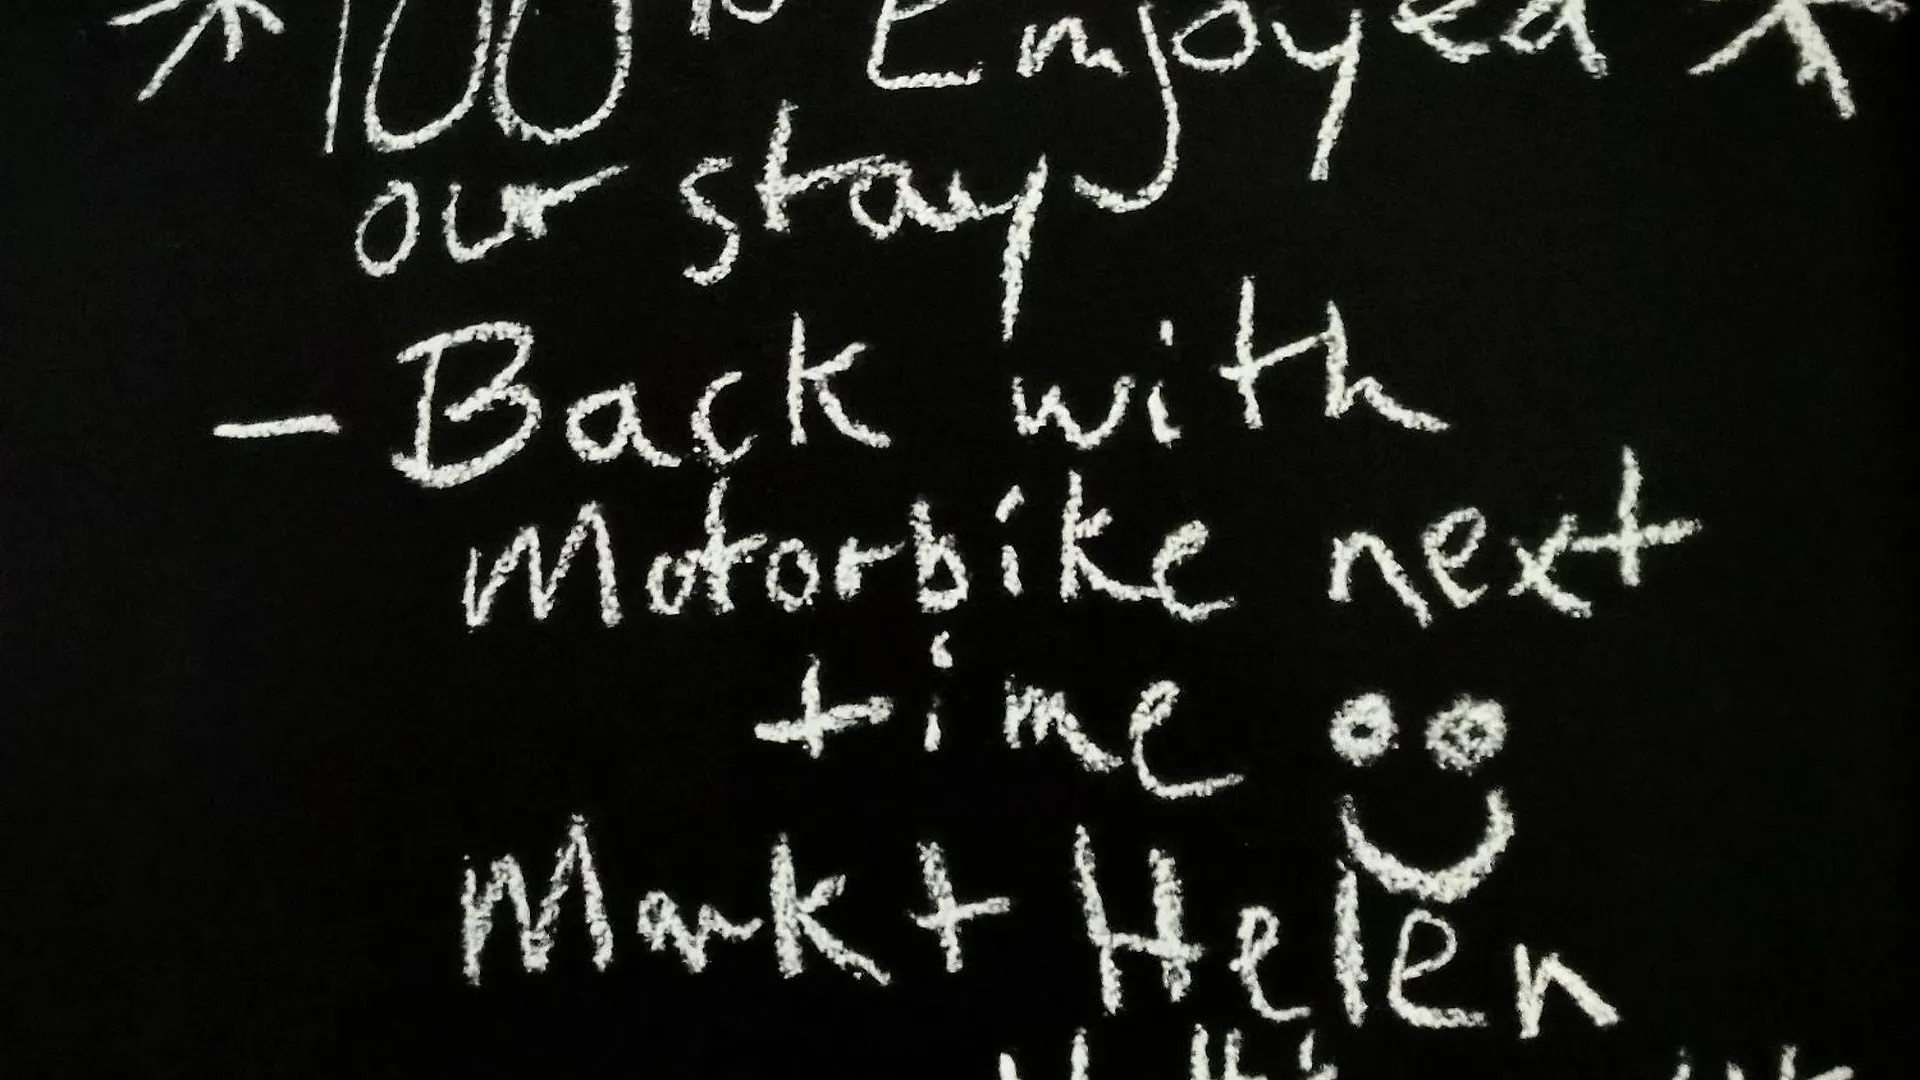 * 100% Enjoyed *
our stay
- Back with
Motorbike next
time
Mark + Helen